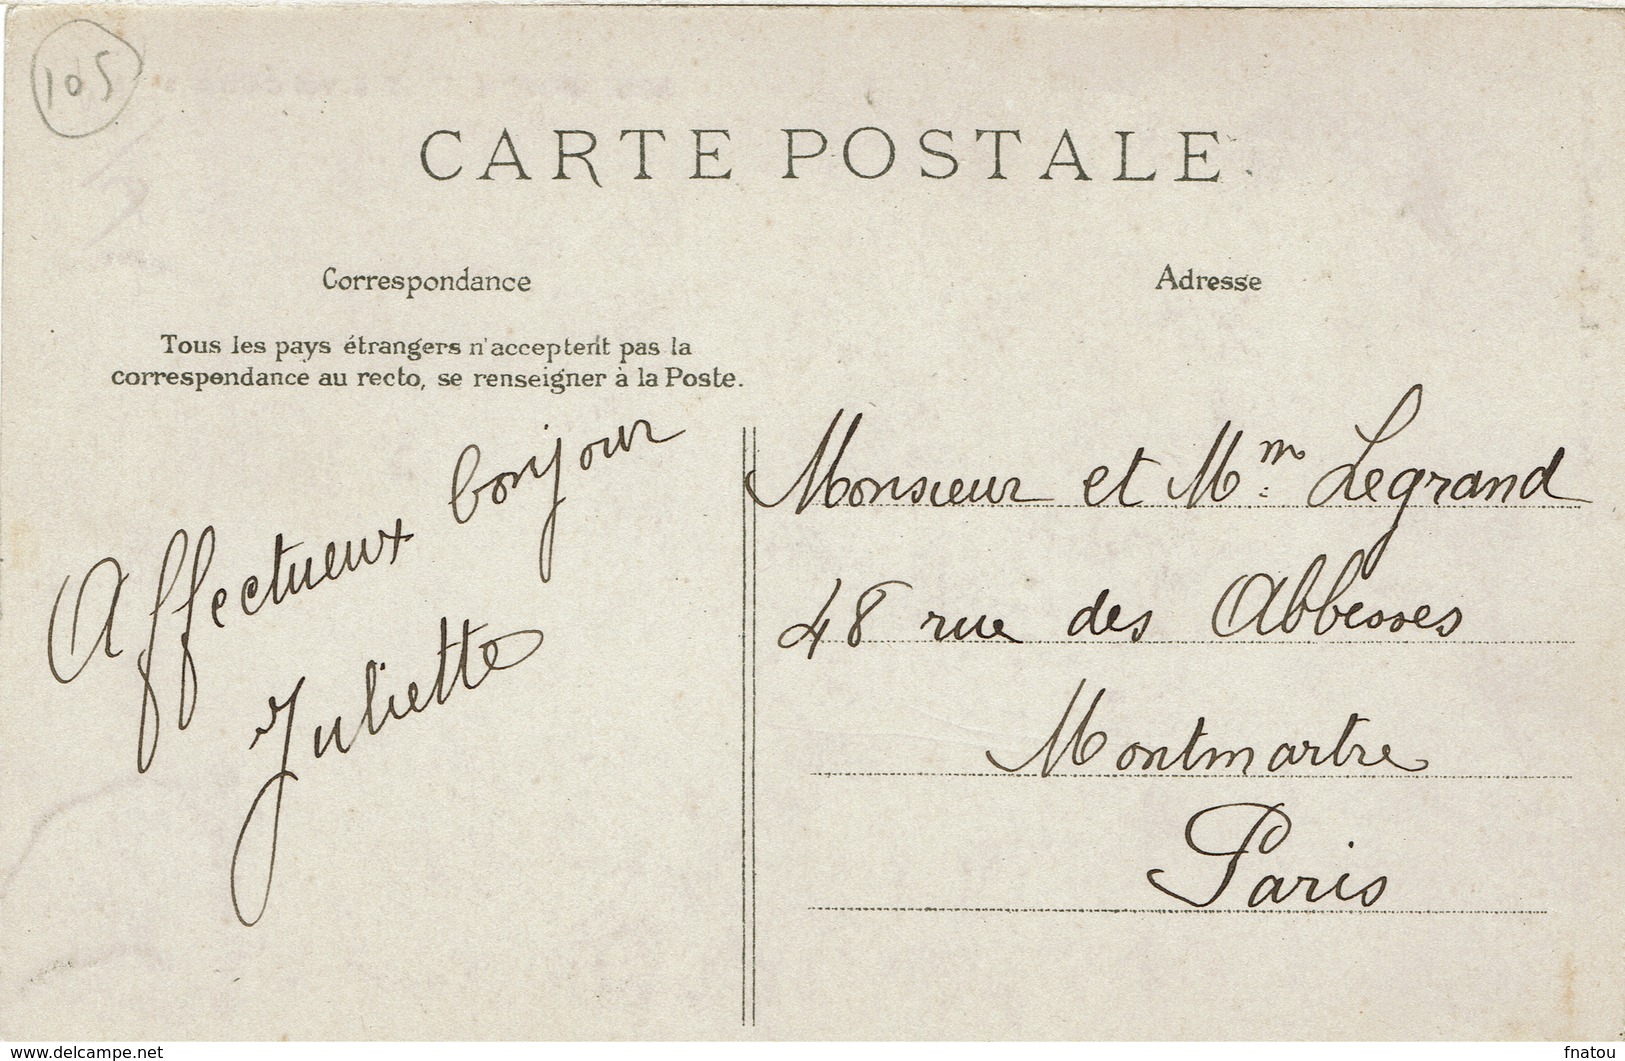 105
CARTE POSTALE
Correspondance
Tous les pays étrangers n'acceptent pas la
correspondance au recto, se renseigner à la Poste.
Affectueux bonjour
Juliette
Adresse
Monsieur et Mm Legrand
48 rue des Abbesses
Montmartre
Paris
www.delcampe.net
fnatou